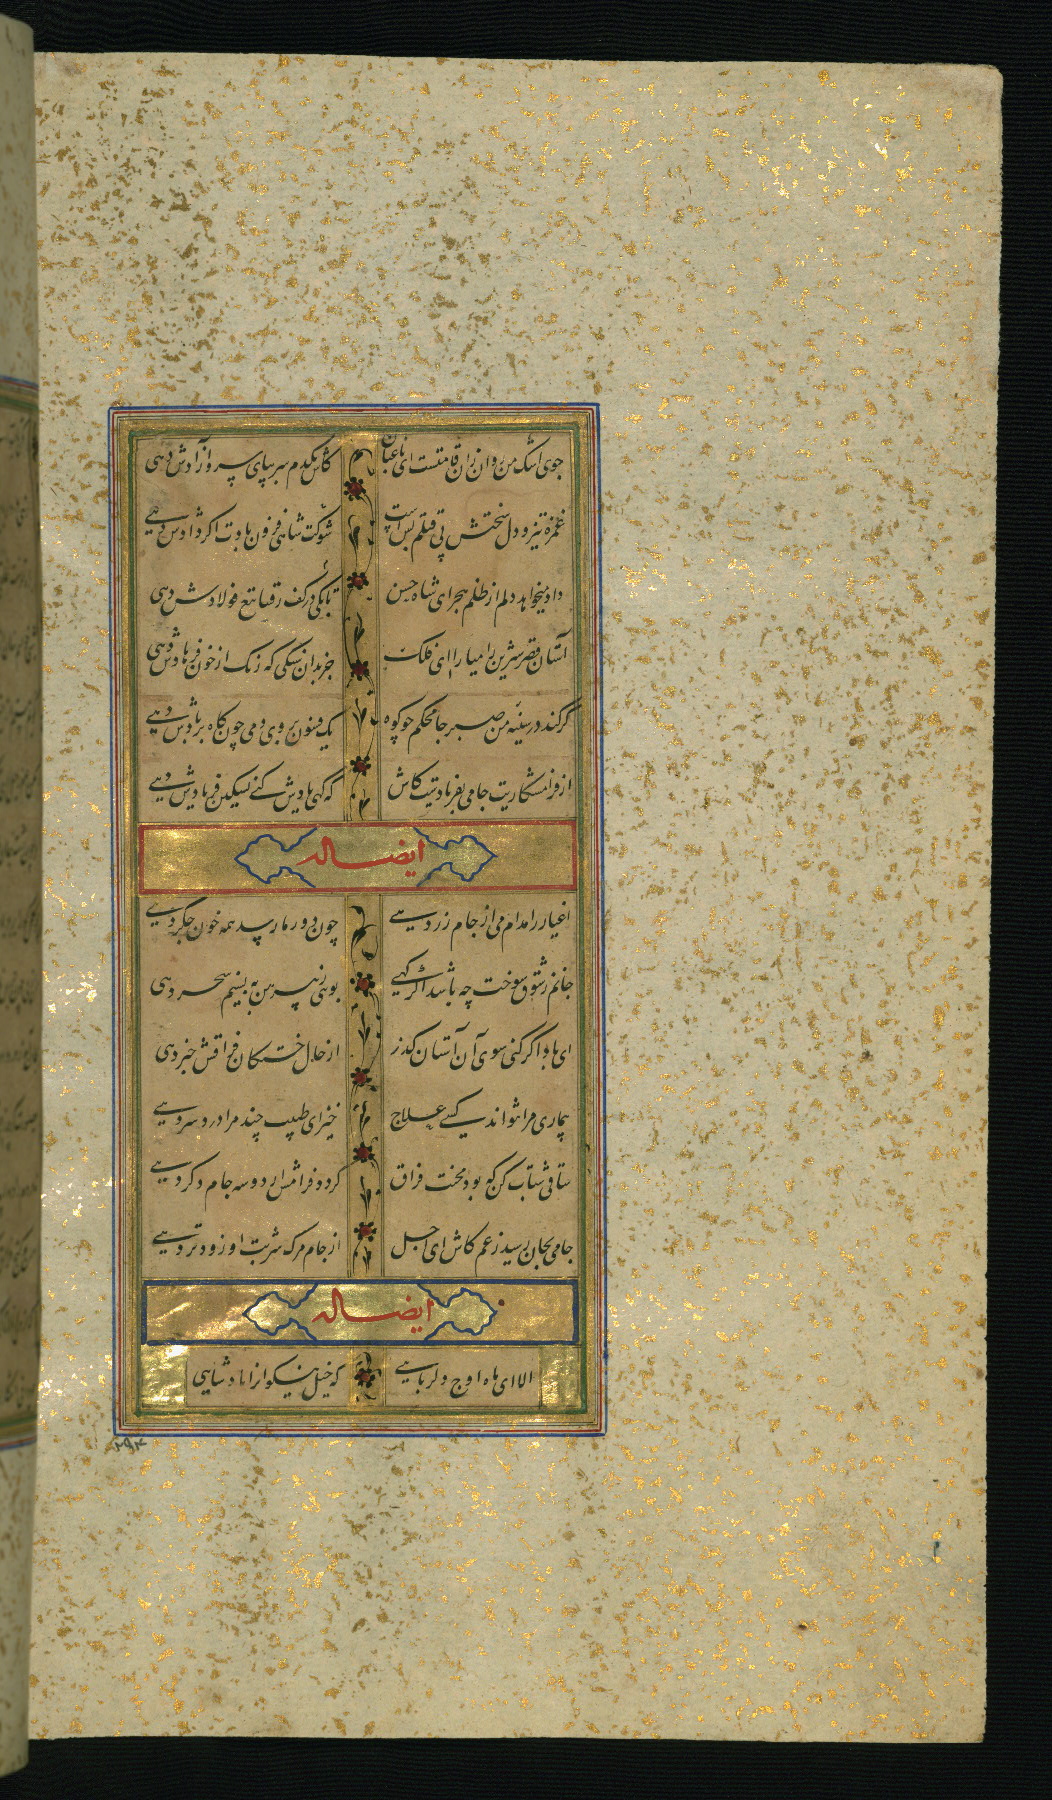 جوی اشک من روان زان قامتست ای باغبان کاش یکدم سر بپای سرو آزادش دهی
غمزه تیز و دل سختش پی قتلم بس است شوکت شاهی فزون بادت اگر دادش دهی
داد میخواهد دلم از ظلم هجر ای شاه حسن تا بکی در کف رقیبا تیغ فولادش دهی
آستان قصر شیرین را میارا ای فلک جز بدان سنگی که رنگ از خون فرهادش دهی
گر کند در سینه من صبر جا محکم چو کوه یک فسون بروی دمی چون کاه بر بادش دهی
از فرامشکاریت جامی بفریادست کاش گه گهی یادش کنی تسکین فریادش دهی
ایضا له
اغیار را مدام می از جام زر دهی چون دور ما رسد همه خون جگر دهی
جانم ز شوق سوخت چه باشد اگر گهی بوئی ز پیرهن به نسیم سحر دهی
ای باد اگر کنی سوی آن آستان گذر از حال خستگان فراقش خبر دهی
بیماری مرا نتواند کسی علاج خیز ای طبیب چند مرا درد سر دهی
ساقی شتاب کن که بود محنت فراق گردد فرامش ار دو سه جام دگر دهی
جامی بجان رسید ز غم کاش ای اجل از جام مرگ شربت او زودتر دهی
ایضا له
الا ای ماه اوج دلربایی که خیل نیکوانرا پادشاهی
۲۹۴